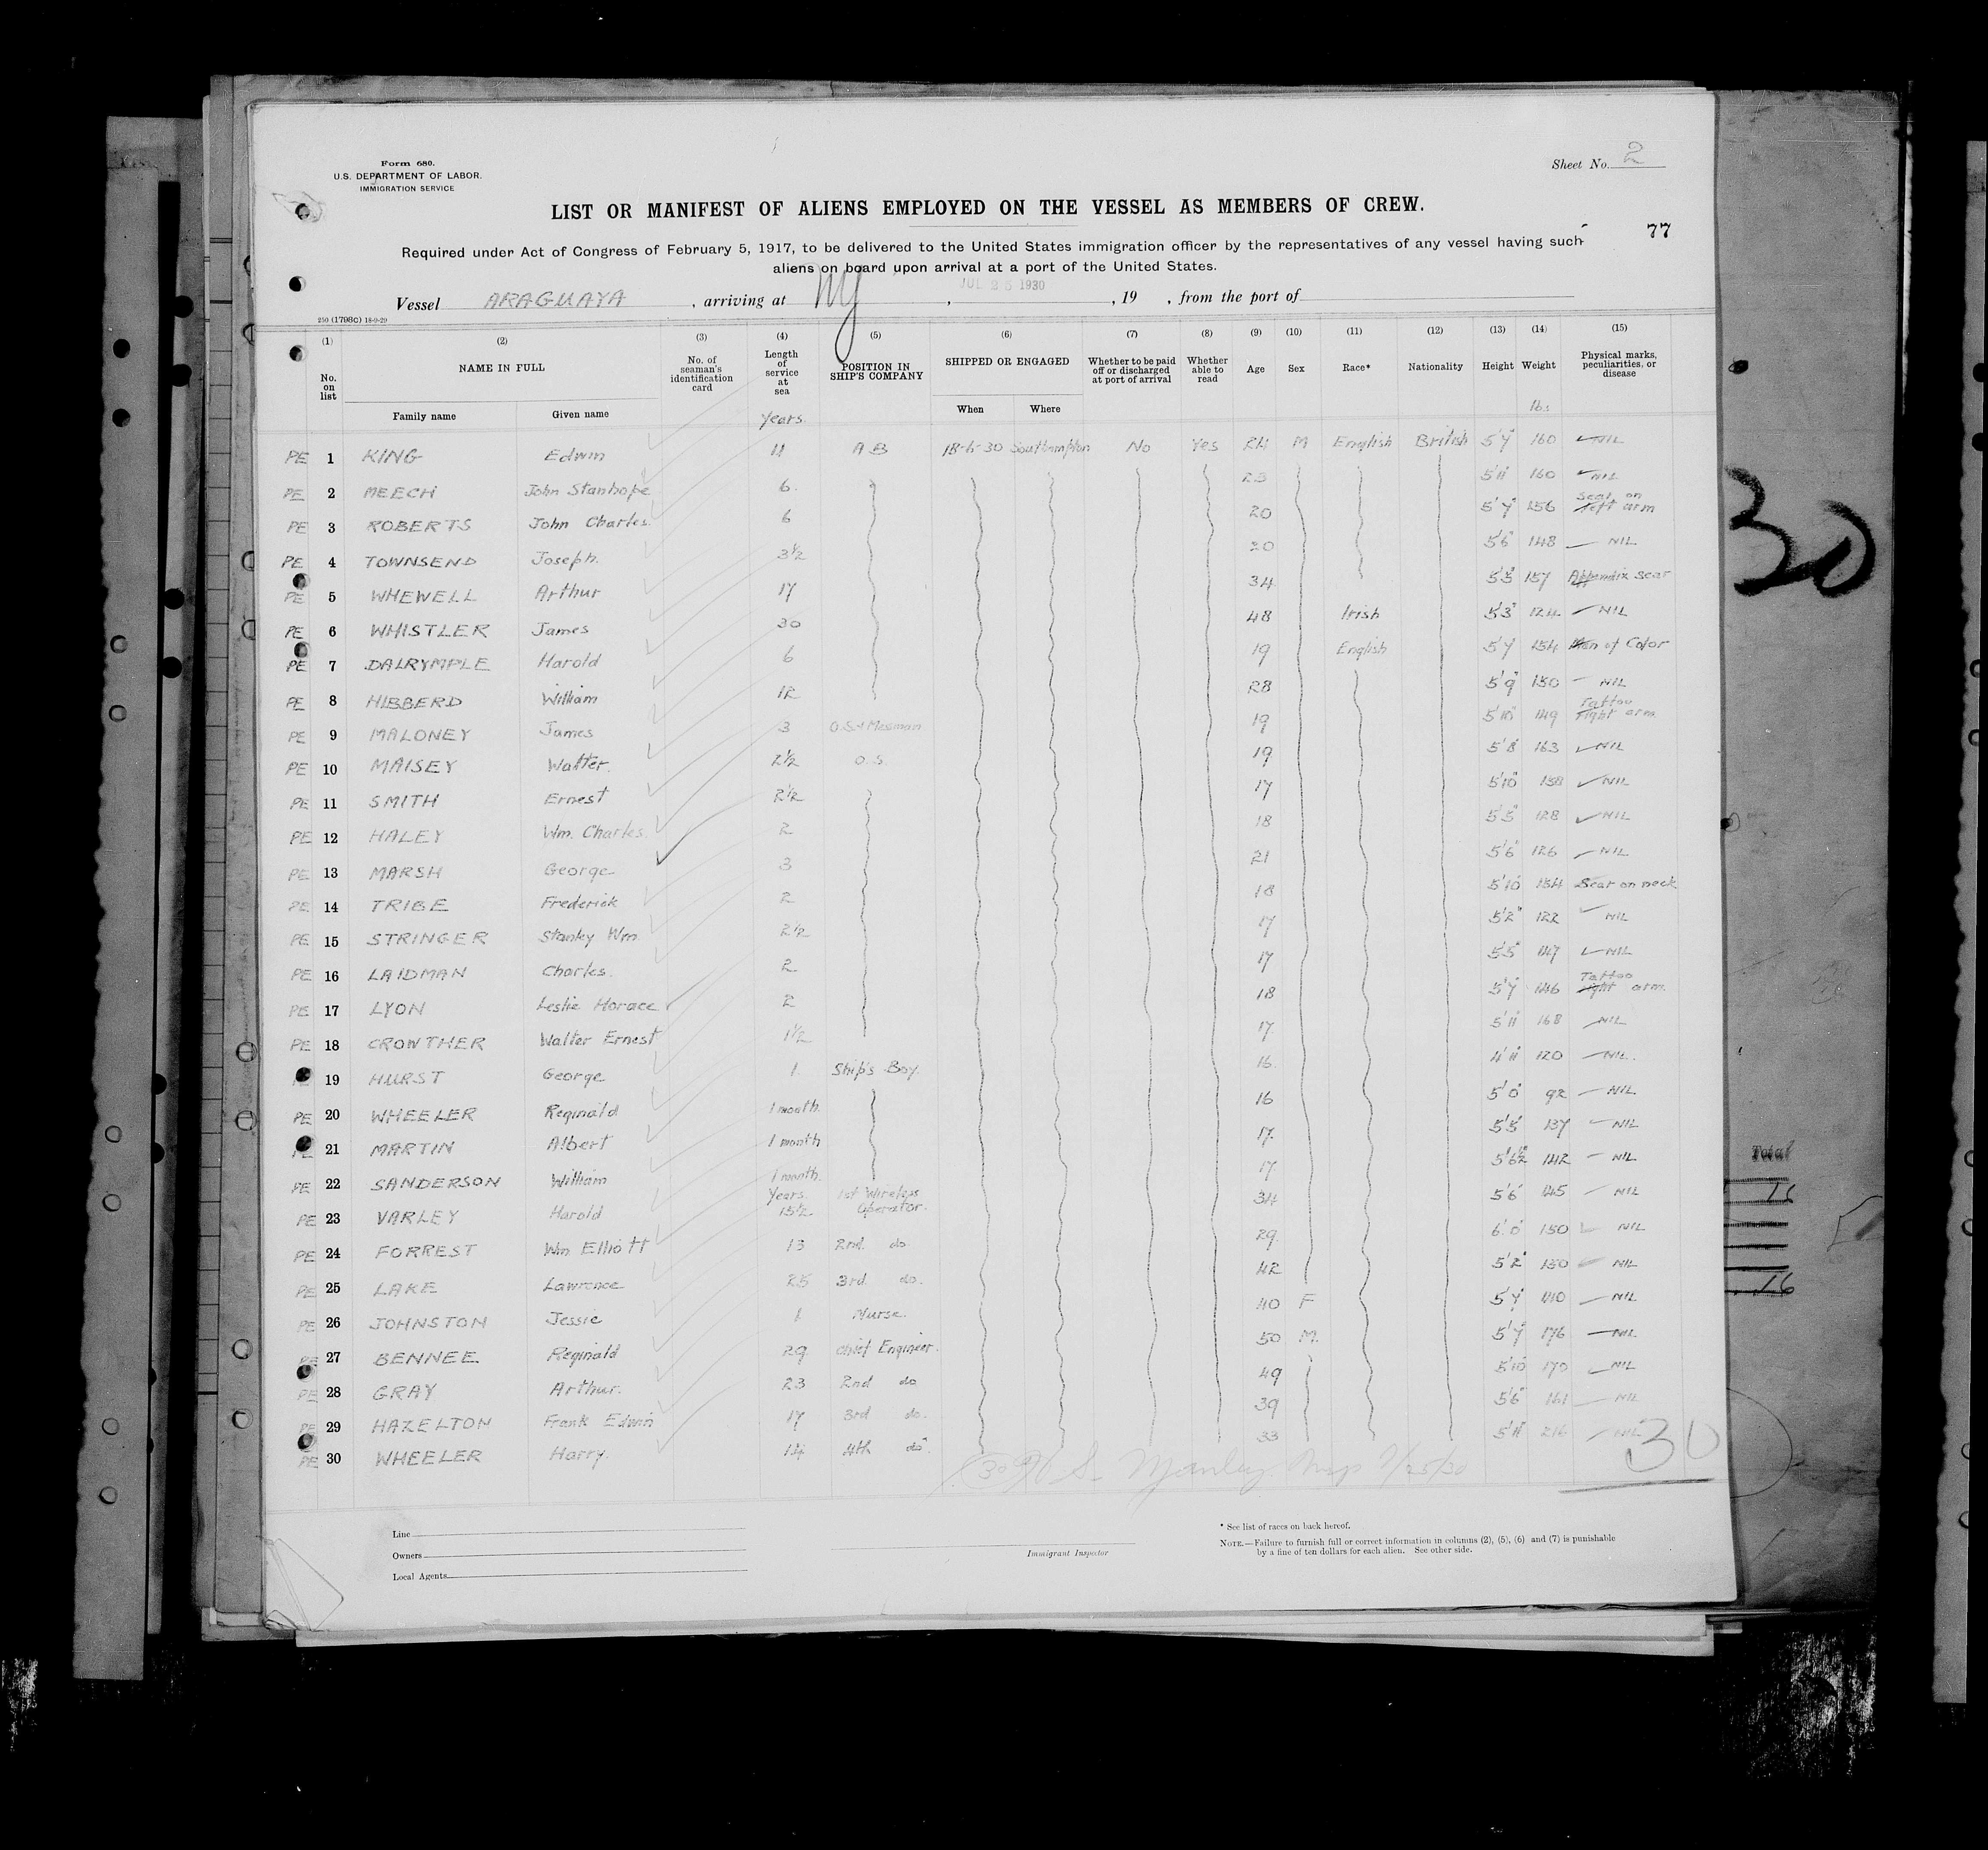 Form 680.
U.S. DEPARTMENT OF LABOR.
IMMIGRATION SERVICE
Sheet No. 2
LIST OR MANIFEST OF ALIENS EMPLOYED ON THE VESSEL AS MEMBERS OF CREW.
77
Required under Act of Congress of February 5, 1917, to be delivered to the United States immigration officer by the representatives of any vessel having such
aliens on board upon arrival at a port of the United States.
Vessel ARAGUAYA, arriving at NY, JUL 25 1930, 19 , from the port of
250 (1798C) 18-9-29
(1) (2) (3) (4) (5) (6) (7) (8) (9) (10) (11) (12) (13) (14) (15)
No. on list NAME IN FULL No. of seaman's identification card Length of service at sea POSITION IN SHIP'S COMPANY SHIPPED OR ENGAGED Whether to be paid off or discharged at port of arrival Whether able to read Age Sex Race* Nationality Height Weight Physical marks, peculiarities, or disease
Family name Given name Years. When Where lbs
PE 1 KING Edwin 11 A B 18-6-30 Southampton No Yes 24 M English British 5'7" 160 NIL
PE 2 MEECH John Stanhope 6. 23 5'11" 160 NIL
PE 3 ROBERTS John Charles. 6 20 5'7" 156 Scar on left arm
PE 4 TOWNSEND Joseph. 3½ 20 5'6" 148 NIL
PE 5 WHEWELL Arthur 17 34 5'5" 157 Appendix scar
PE 6 WHISTLER James 30 48 Irish 5'3" 124 NIL
PE 7 DALRYMPLE Harold 6 19 English 5'7 154 Man of Color
PE 8 HIBBERD William 12 28 5'9" 150 NIL
PE 9 MALONEY James 3 O.S. & Messman 19 5'10" 149 Tattoo right arm
PE 10 MAISEY Walter. 2½ O.S. 19 5'8" 163 NIL
PE 11 SMITH Ernest 2½ 17 5'10" 158 NIL
PE 12 HALEY Wm. Charles. 2 18 5'5" 128 NIL
PE 13 MARSH George 3 21 5'6" 126 NIL
PE 14 TRIBE Frederick 2 18 5'10" 154 Scar on neck
PE 15 STRINGER Stanley Wm 2½ 17 5'2" 122 NIL
PE 16 LAIDMAN Charles. 2 17 5'5" 147 NIL
PE 17 LYON Leslie Horace 2 18 5'7" 146 Tattoo right arm.
PE 18 CROWTHER Walter Ernest 1½ 17 5'11" 168 NIL
19 HURST George 1. Ship's Boy. 16 4'11" 120 NIL.
PE 20 WHEELER Reginald 1 month. 16 5'0" 92 NIL
PE 21 MARTIN Albert 1 month 17. 5'5" 137 NIL
PE 22 SANDERSON William 1 month. 17 5'6½" 142 NIL
PE 23 VARLEY Harold Years. 15½ 1st Wireless Operator. 34 5'6" 145 NIL
PE 24 FORREST Wm Elliott 13 2nd. do 29 6'0" 150 NIL
PE 25 LAKE Lawrence 25 3rd do. 42 5'2" 150 NIL
PE 26 JOHNSTON Jessie 1. Nurse. 40 F 5'7" 140 NIL
PE 27 BENNEE Reginald 29 Chief Engineer. 50 M. 5'7" 176 NIL
PE 28 GRAY Arthur. 23 2nd do 49 5'10" 170 NIL
PE 29 HAZELTON Frank Edwin 17 3rd do. 39 5'6" 161 NIL
PE 30 WHEELER Harry. 14 4th do. 33 5'11" 216 NIL
30
7/25/30
Line
Owners
Local Agents
Immigrant Inspector
* See list of races on back hereof.
NOTE.—Failure to furnish full or correct information in columns (2), (5), (6) and (7) is punishable
by a fine of ten dollars for each alien. See other side.
30
Total
16
16